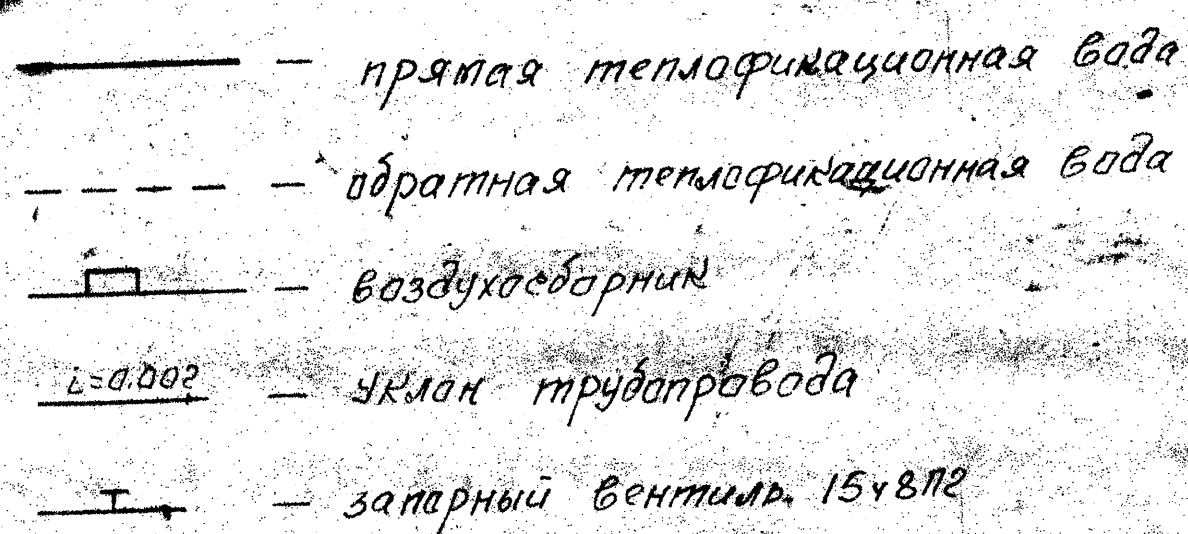 — прямая теплофикационная вода
— обратная теплофикационная вода
— воздухосборник
i=0.002 — уклон трубопровода
— запорный вентиль. 15ч8П2